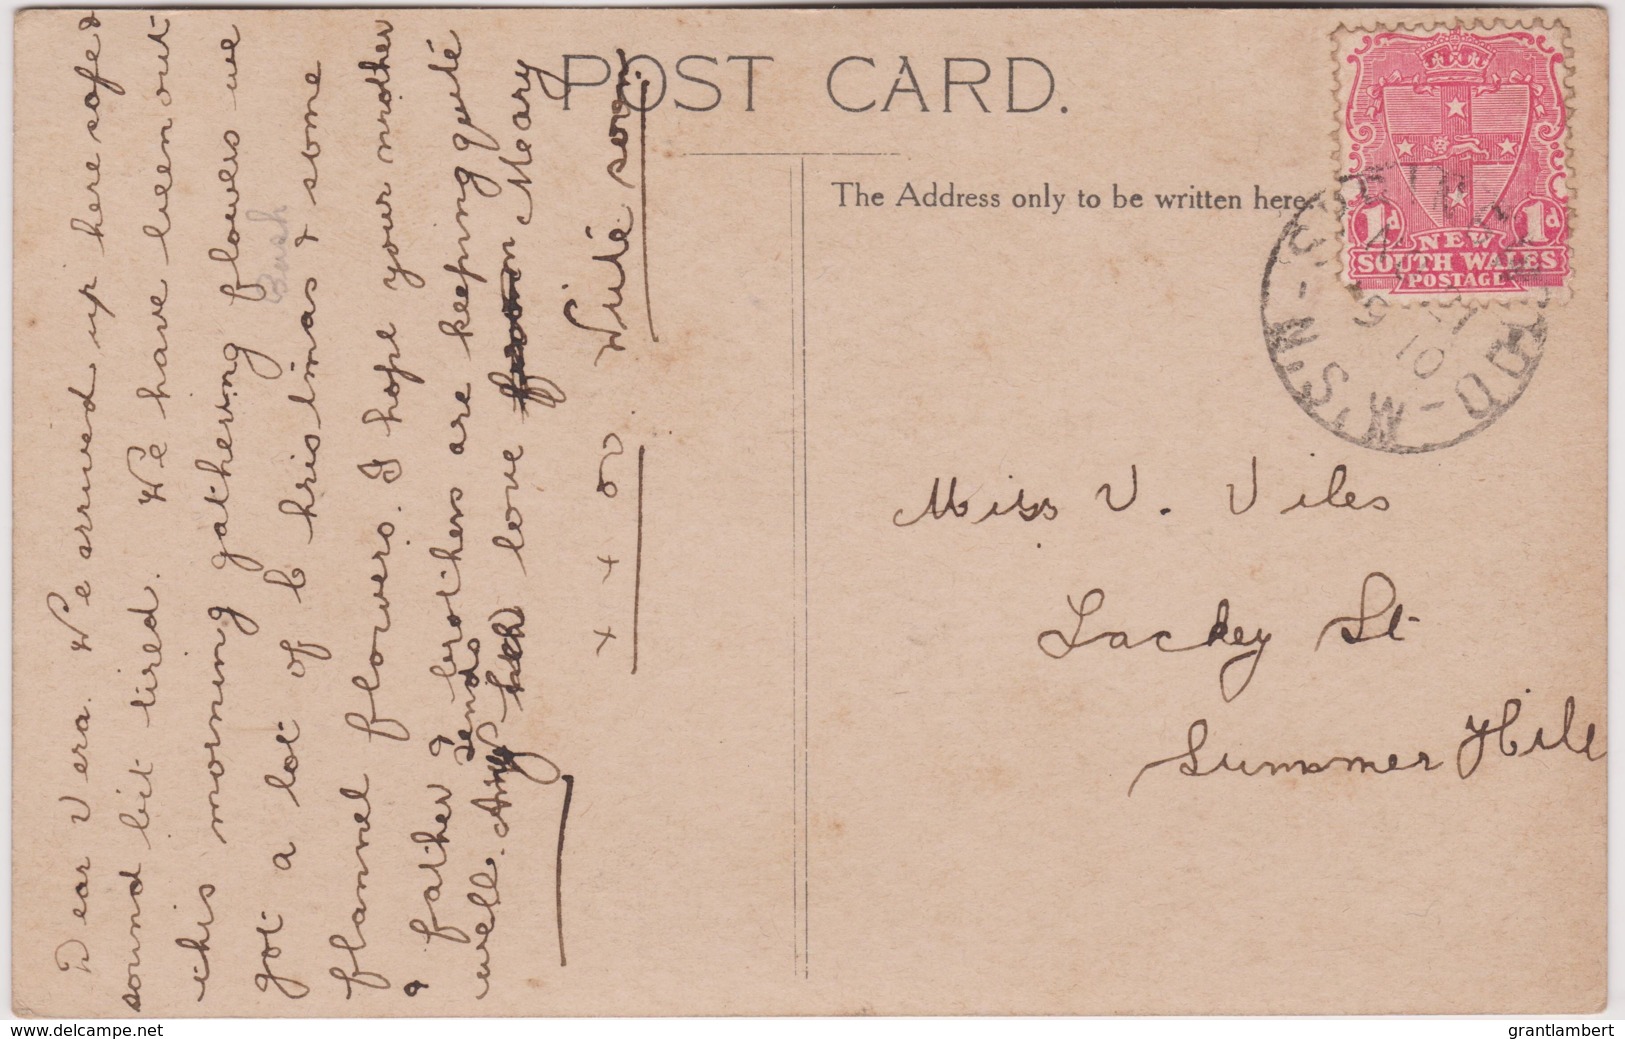 POST CARD.
The Address only to be written here.
1d 1d
NEW
SOUTH WALES
POSTAGE
N.S.W
10
Dear Vera. We arrived up here safe &
sound bit tired. We have been out
this morning gathering flowers we
Bush
got a lot of Christimas & some
flannel flowers. I hope your mother
& father & brothers are keeping quite
sends
well. Amy love from Meary
x x
Write soon
Miss V. Viles
Lackey St
Summer Hill
www.delcampe.net
grantlambert